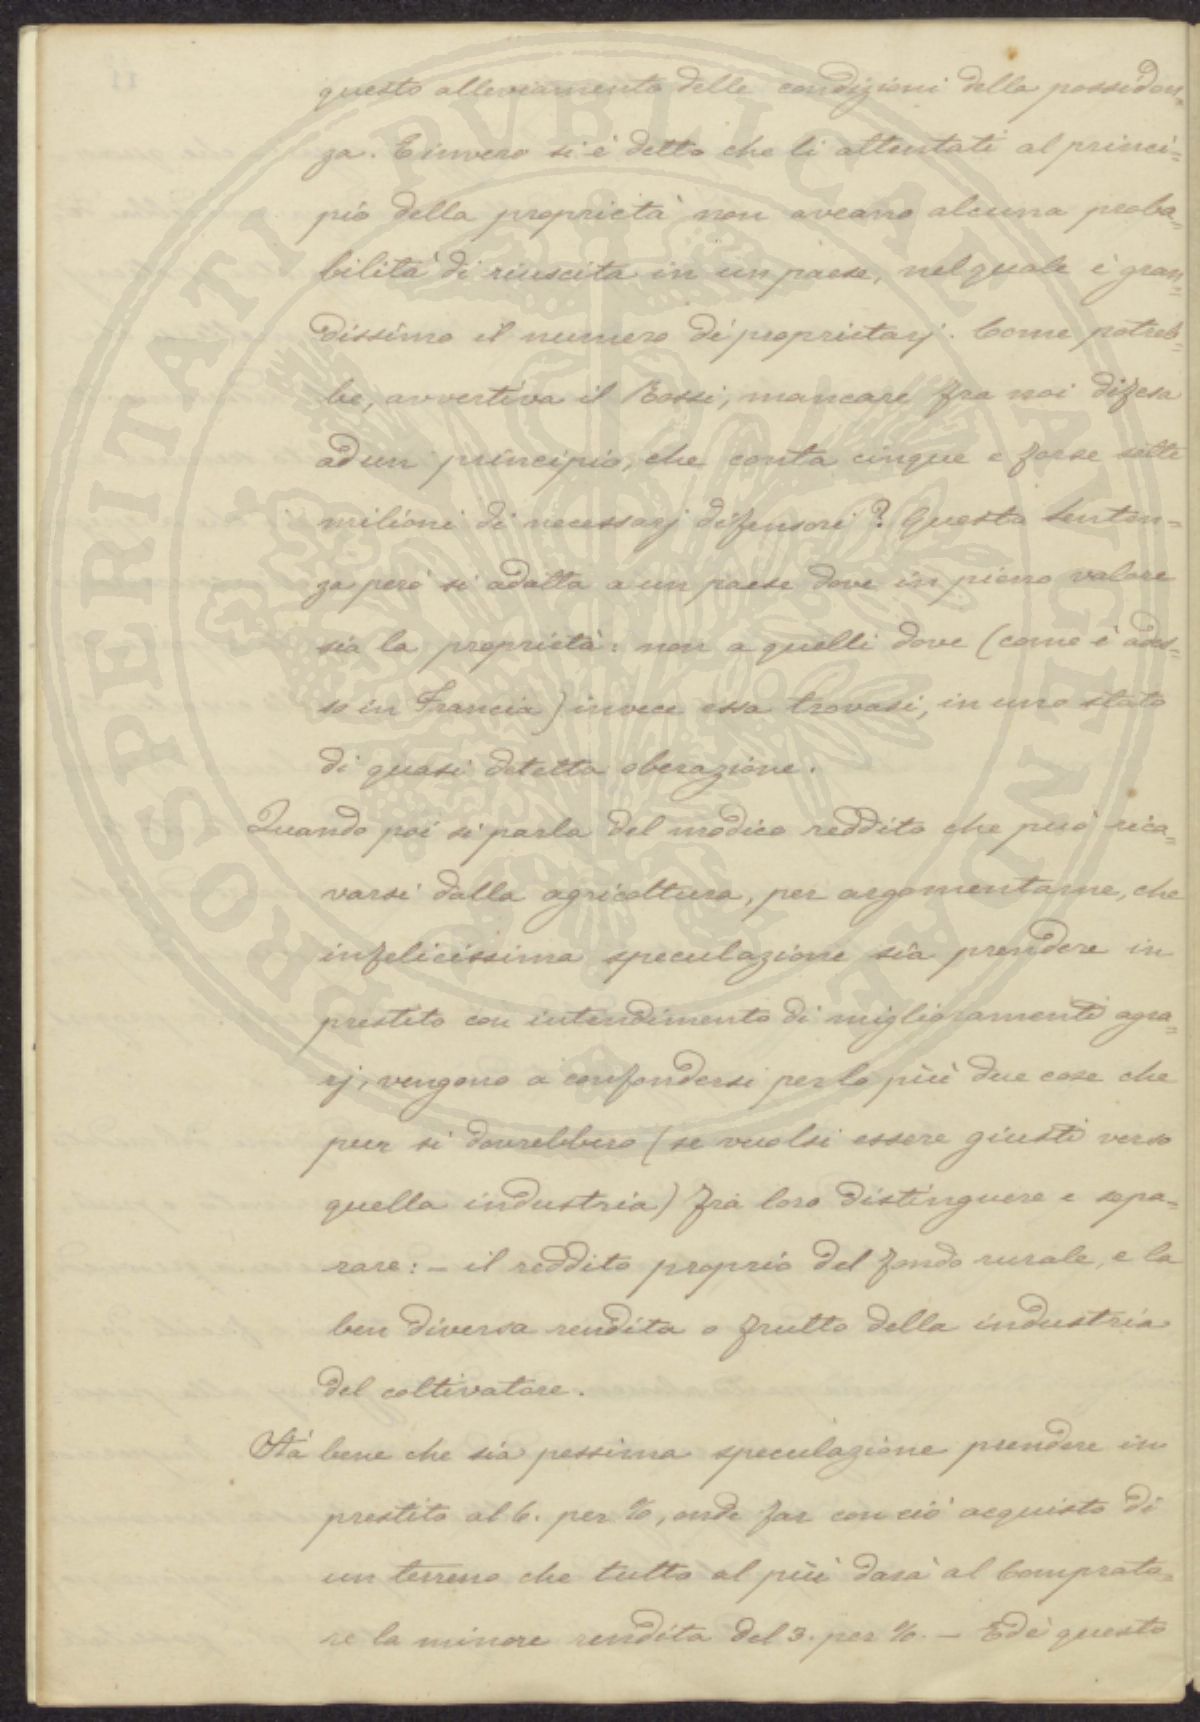 questo alleviamento delle condizioni della possiden=
za. E invero si è detto che li attentati al princi=
pio della proprietà non aveano alcuna proba=
bilità di riuscita in un paese, nel quale è gran=
dissimo il numero di proprietarj. Come potreb=
be, avvertiva il Rossi, mancare fra noi difesa
ad un principio, che conta cinque e forse sette
milioni di necessarj difensori? Questa senten=
za però si adatta a un paese dove in pieno valore
sia la proprietà: non a quelli dove (come è ades=
so in Francia) invece essa trovasi, in uno stato
di quasi oberazione.
Quando poi si parla del modico reddito che può rica=
varsi dalla agricoltura, per argomentarne, che
infelicissima speculazione sia prendere in
prestito con intendimento di miglioramenti agra=
rj, vengono a confondersi per lo più due cose che
pur si dovrebbero (se vuolsi essere giusti verso
quella industria) fra loro distinguere e sepa=
rare: – il reddito proprio del fondo rurale, e la
ben diversa rendita o frutto della industria
del coltivatore.
Stà bene che sia pessima speculazione prendere in
prestito al 6. per %, onde far con ciò acquisto di
un terreno che tutto al più darà al Comprato=
re la minore rendita del 3. per %. – Ed è questo
PROSPERITATI PVBLICAE AVGENDAE